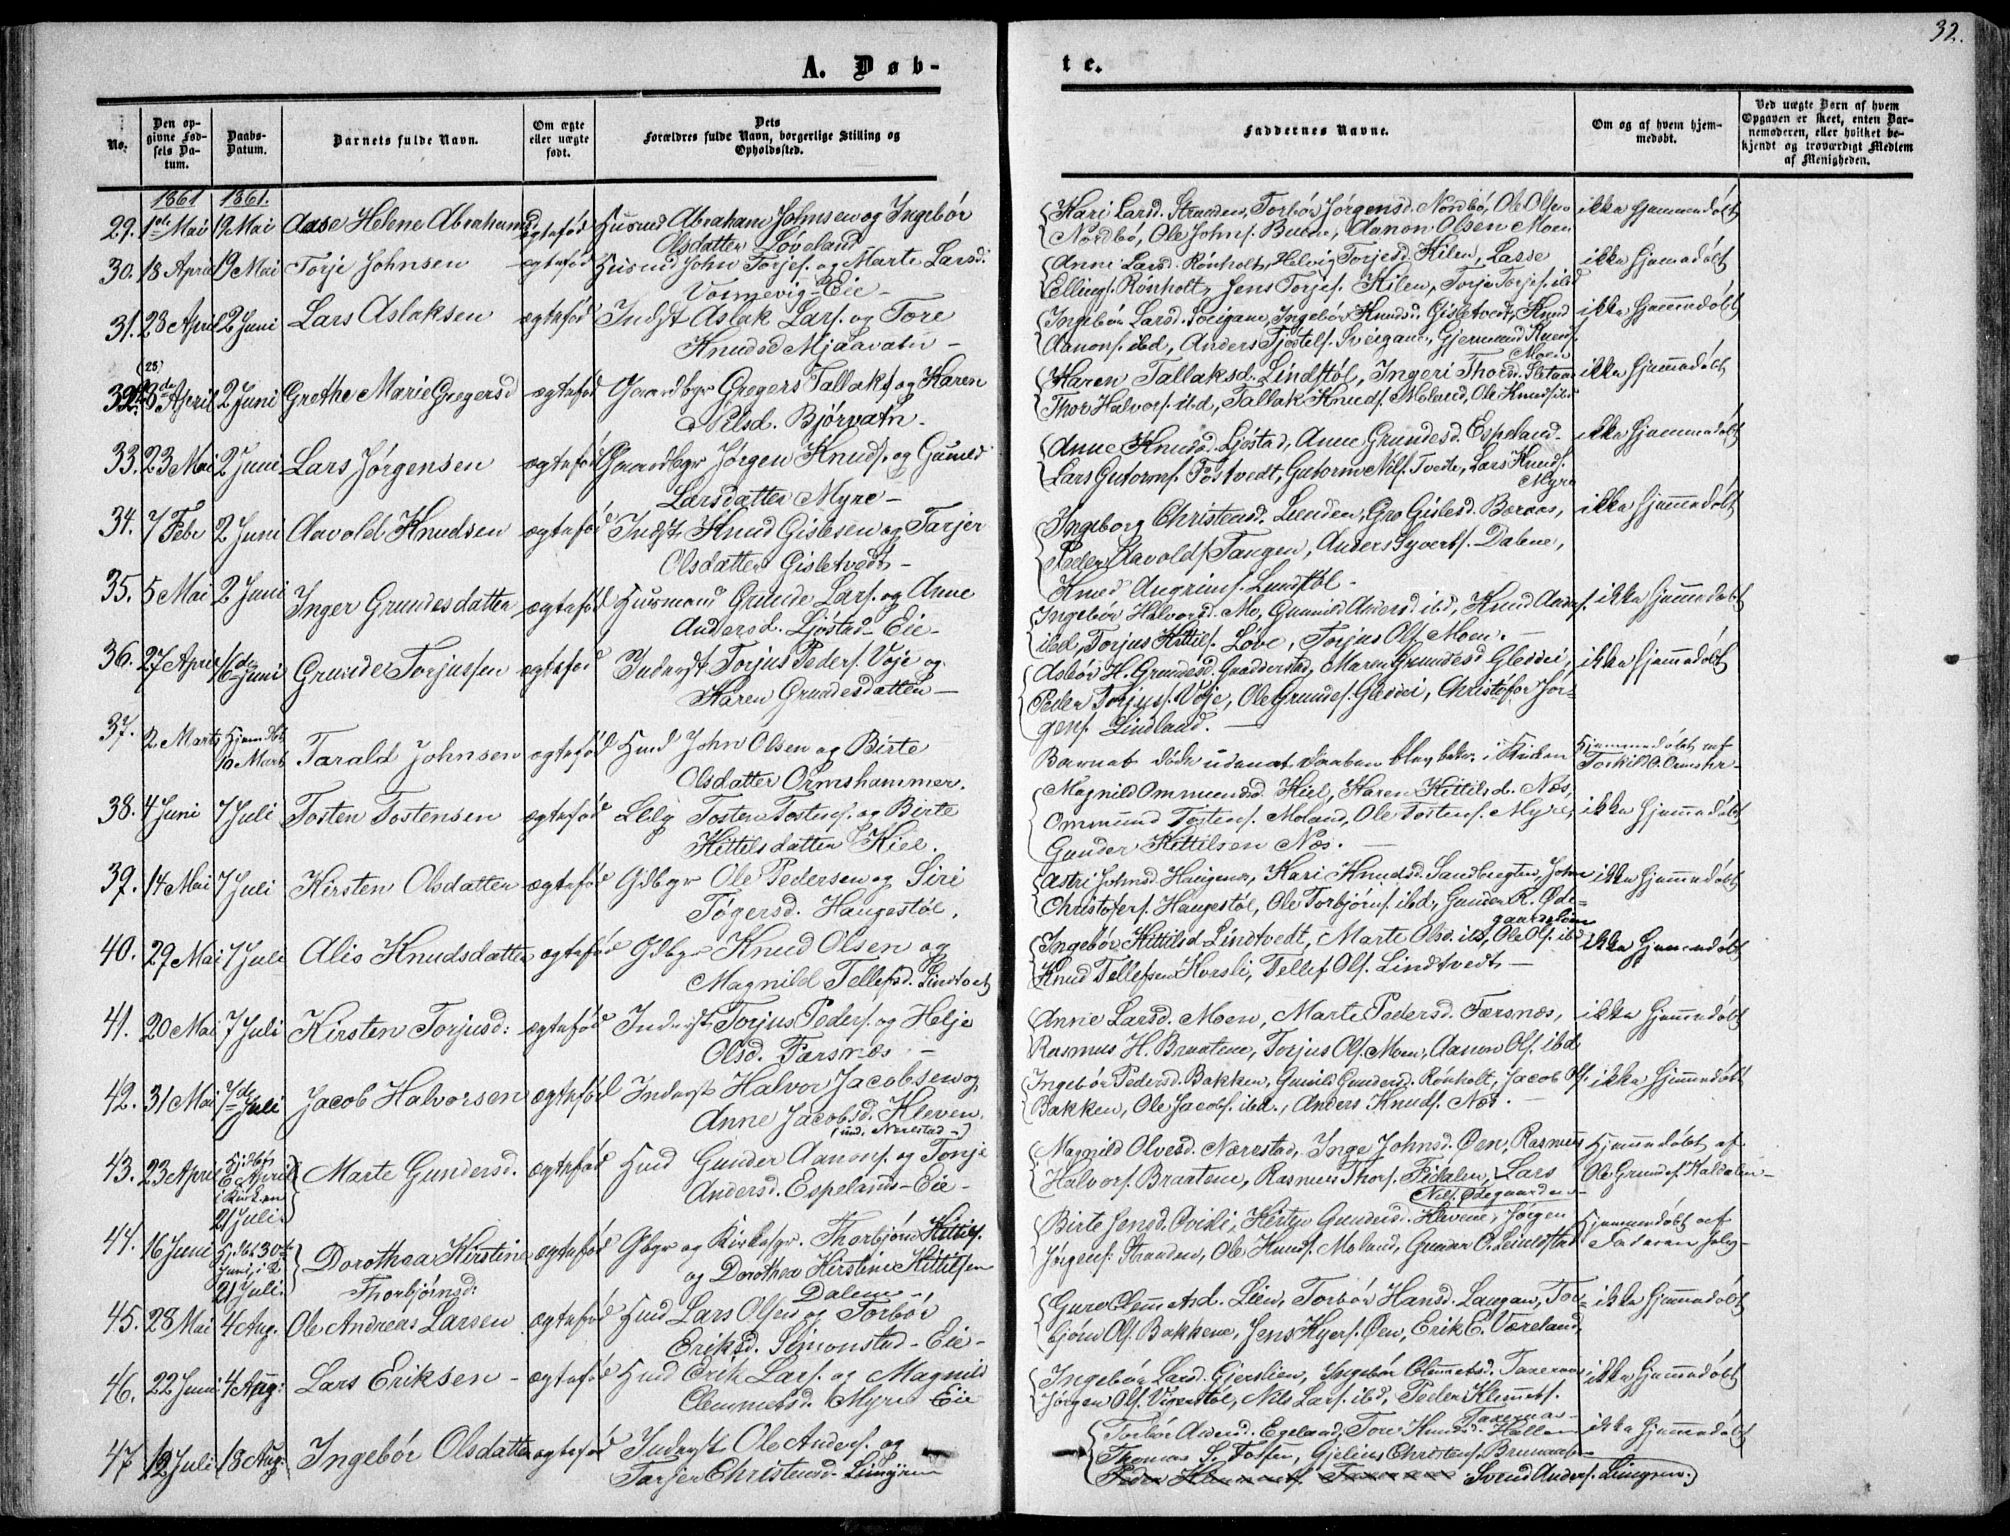 32.
A. Døb-
te.
No.
Den op-
givne Fød-
sels Da-
tum.
Daabs-
Datum.
Barnets fulde Navn.
Om ægte
eller uægte
født.
Dets
Forældres fulde Navn, borgerlige Stilling og
Opholdssted.
Faddernes Navne.
Om og af hvem hjem-
medøbt.
Ved uægte Børn af hvem
Opgaven er skeet, enten Bar-
nemoderen, eller hvilket be-
kjendt og troværdigt Medlem
af Menigheden.
1861 1861.
29. 1ste Mai 12 Mai Aase Helene Abrahamsd ægtefød Husmd Abraham Johnsen og Ingebør
Olsdatter Løveland
Kari Larsd. Stranden, Torbør Jørgensd. Nordbø, Ole Olsen
Nordbø, Ole Johns. Buene, Aanon Olsen Moen
ikke hjemmedøbt
30. 18 April 19 Mai Torje Johnsen ægtefød Husmd John Torjes. og Marte Larsd.
Vormevig-Eie-
Anne Larsd. Rønholt, Helvig Torjesd. Kilen, Lasse
Ellings. Rønholt, Jens Torjes. Kilen, Torje Torjes. ibd
ikke hjemmedøbt
31. 28 April 2 Juni Lars Aslaksen ægtefød Indst Aslak Lars. og Tore
Knudsd Mjaavatn -
Ingebør Larsd. Sveigane, Ingebør Knudsd. Gisletvedt, Knud
Aanons. ibd, Anders Tjostels. Sveigane, Gjermund Knuds.
Moen
ikke hjemmedøbt
(25)
32. 3de April 2 Juni Grethe Marie Gregersd ægtefød Gaardbgr Gregers Tallaks. og Karen
Nilsd. Bjørvatn.
Karen Tallaksd. Lindstøl, Ingeri Thorsd. Sletaas
Thor Halvors. ibd, Tallak Knuds. Moland, Ole Knuds. ibd
ikke hjemmedøbt
33. 23 Mai 2 Juni Lars Jørgensen ægtefød Gaardbgr Jørgen Knuds. og Gunild
Larsdatter Myre -
Anne Knudsd. Ljøstad, Anne Grundesd. Espeland.
Lars Gutorms. Tostvedt, Gutorm Nils. Tvede, Lars Knuds.
Myre
ikke hjemmedøbt
34. 7 Febr 2 Juni Aavold Knudsen ægtefød Indst Knud Gislesen og Tarjer
Olsdatter Gisletvedt -
Ingeborg Christensd. Lunden, Gro Gislesd. Beraas,
Peder Aavolds. Tangen, Anders Syverts. Dalene,
Knud Angrims. Lundstøl -
ikke hjemmedøbt
35. 5 Mai 2 Juni Inger Grundesdatter ægtefød Husmand Grunde Lars. og Anne
Andersd. Ljøstad-Eie-
Ingebør Halvorsd. Mo, Gunnild Andersd ibd, Knud Anders.
ibd, Torjus Kittils. Løve, Torjus Ols. Moen. -
ikke hjemmedøbt
36. 27 April 16de Juni Grunde Torjussen ægtefød Inderst Torjus Peders. Voje og
Karen Grundesdatter -
Asbør H. Grundesd. Gradderstad, Maren Grundesd Glesdei,
Peder Torjuss. Voje, Ole Grundes. Glesdei, Christofer Jør-
gens. Lindland. -
ikke hjemmedøbt
37. 2 Marts Hjemdbt
10 Marts Tarald Johnsen ægtefød Husmd John Olsen og Birte
Olsdatter Ormshammer.
Barnet døde uden at Daaben blev bekr. i Kirken
Hjemmedøbt af
Torkild O. Ormshr-
38. 4 Juni 7 Juli Tosten Tostensen ægtefød Tosten Tostens. og Birte
Kittelsdatter Kiel.
Magnild Ommundsd. Kiel, Karen Kittilsd. Næs,
Ommund Tostens. Moland, Ole Tostens. Myre,
Gunder Kittilsen Næs. -
ikke hjemmedøbt
39. 14 Mai 7 Juli Kirsten Olsdatter ægtefød Gdbgr Ole Pedersen og Siri
Tøgersd. Haugestøl.
Astri Johnsd Haugene, Kari Knudsd. Sandbugten, John
Christofers. Haugestøl, Ole Torbjørns. ibd, Gunder R. Øde-
gaardslien
ikke hjemmedøbt
40. 29 Mai 7 Juli Alis Knudsdatter ægtefød Gdbgr Knud Olsen og
Magnild Tellefsd. Lindtvet
Ingebør Kittilsd Lindtvedt, Marte Olsd. ibd, Ole Ols. ibd
Knud Tellefsen Horsli, Tellef Ols. Lindtvedt -
ikke hjemmedøbt
41. 20 Mai 7 Juli Kirsten Torjusd: ægtefød Inderst Torjus Peders. og Helje
Olsd. Færsnæs -
Anne Larsd. Moen, Marte Pedersd. Færsnæs,
Rasmus H. Braatene, Torjus Ols. Moen, Aanon Ols. ibd
ikke hjemmedøbt
42. 31 Mai 7de Juli Jacob Halvorsen ægtefød Inderst Halvor Jacobsen og
Anne Jacobsd. Kleven.
(und. Nærestad -)
Ingebør Pedersd. Bakken, Gunild Gundersd. Rønholt, Jacob Ols.
Bakken, Ole Jacobs. ibd., Anders Knuds. Næs -
ikke hjemmedøbt
43. 23 April Hj.dbt
6 April
i Kirken
21 Juli. Marte Gundersd. ægtefød Husmd Gunder Aanons. og Tonje
Andersd. Espelands-Eie-
Magnild Olvesd. Nærestad, Inge Johnsd. Øen, Rasmus
Halvors. Braatene, Rasmus Thors. Fidalen, Lars
Nils. Ødegaarden -
Hjemmedøbt af
Ole Grundes. Kaldalen-
44. 16 Juni Hj.dbt 30te
Juni, i K.
21 Juli. Dorothea Kirstine
Thorbjørnsd: ægtefød Gbgr og Kirkesgr. Thorbjørn Kittils.
og Dorothea Kirstine Kittilsen
Dalen -
Birte Jensd. Ovidi, Kirsten Gundersd. Klevene, Jørgen
Jørgens. Stranden, Ole Knuds. Moland, Gunder O. Leindstad
Hjemmedøbt af
Faderen selv-
45. 28 Mai 4 Aug. Ole Andreas Larsen ægtefød Husmd Lars Olsen og Torbør
Eriksd. Simonstad-Eie-
Guro Clem And. Lien, Torbør Hansd. Laugan, Tor-
bjørn Ols. Bakkene, Jens Kyers. Øen, Erik E. Væreland,
ikke hjemmedøbt
46. 22 Juni 4 Aug: Lars Eriksen - ægtefød Husmd Erik Lars. og Magnild
Clemmetsd. Myre Eie
Ingebør Larsd. Gjerslien, Ingebør Clemetsd. Taxeraas
Jørgen Ols. Vigestøl, Nils Lars. ibd, Peder Klemets.
Taxeraas -
ikke hjemmedøbt
47 12 Juli 18 Aug: Ingebør Olsdatter ægtefød Inderst Ole Anders. og
Tarjer Christensd. Limyren
Torbør Andersd. Egeland, Tore Knudsd. Hallen
Thomas S. Toften, Gjelius Christens. Brunaasen
Peder Klemmets. Taxeraas Svend Anders. Limyren.)
ikke hjemmedøbt